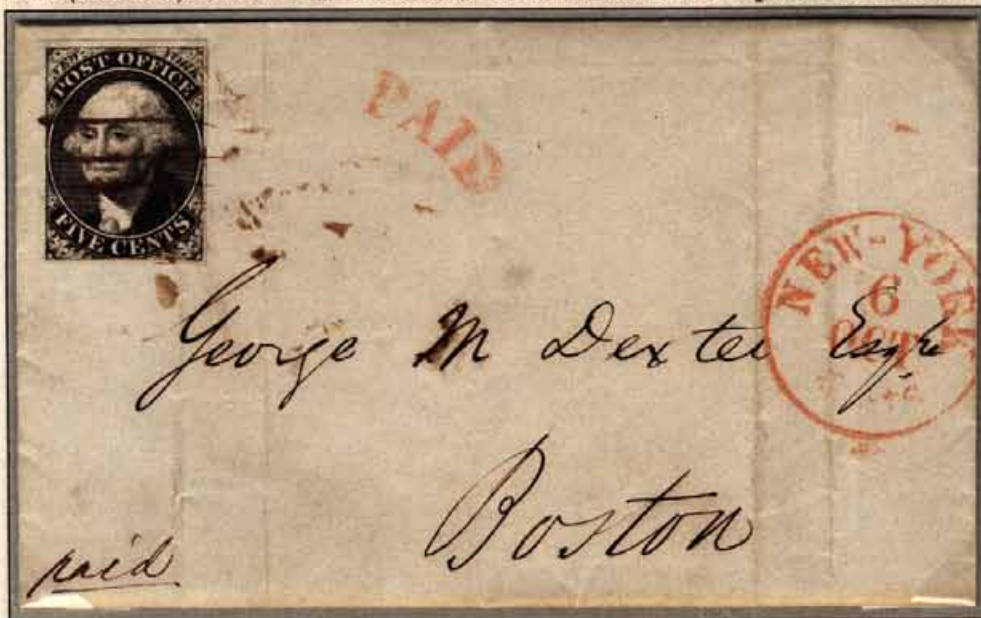 POST OFFICE
FIVE CENTS
PAID
NEW-YORK
6
OCT
George M Dexter Esqre
Boston
paid